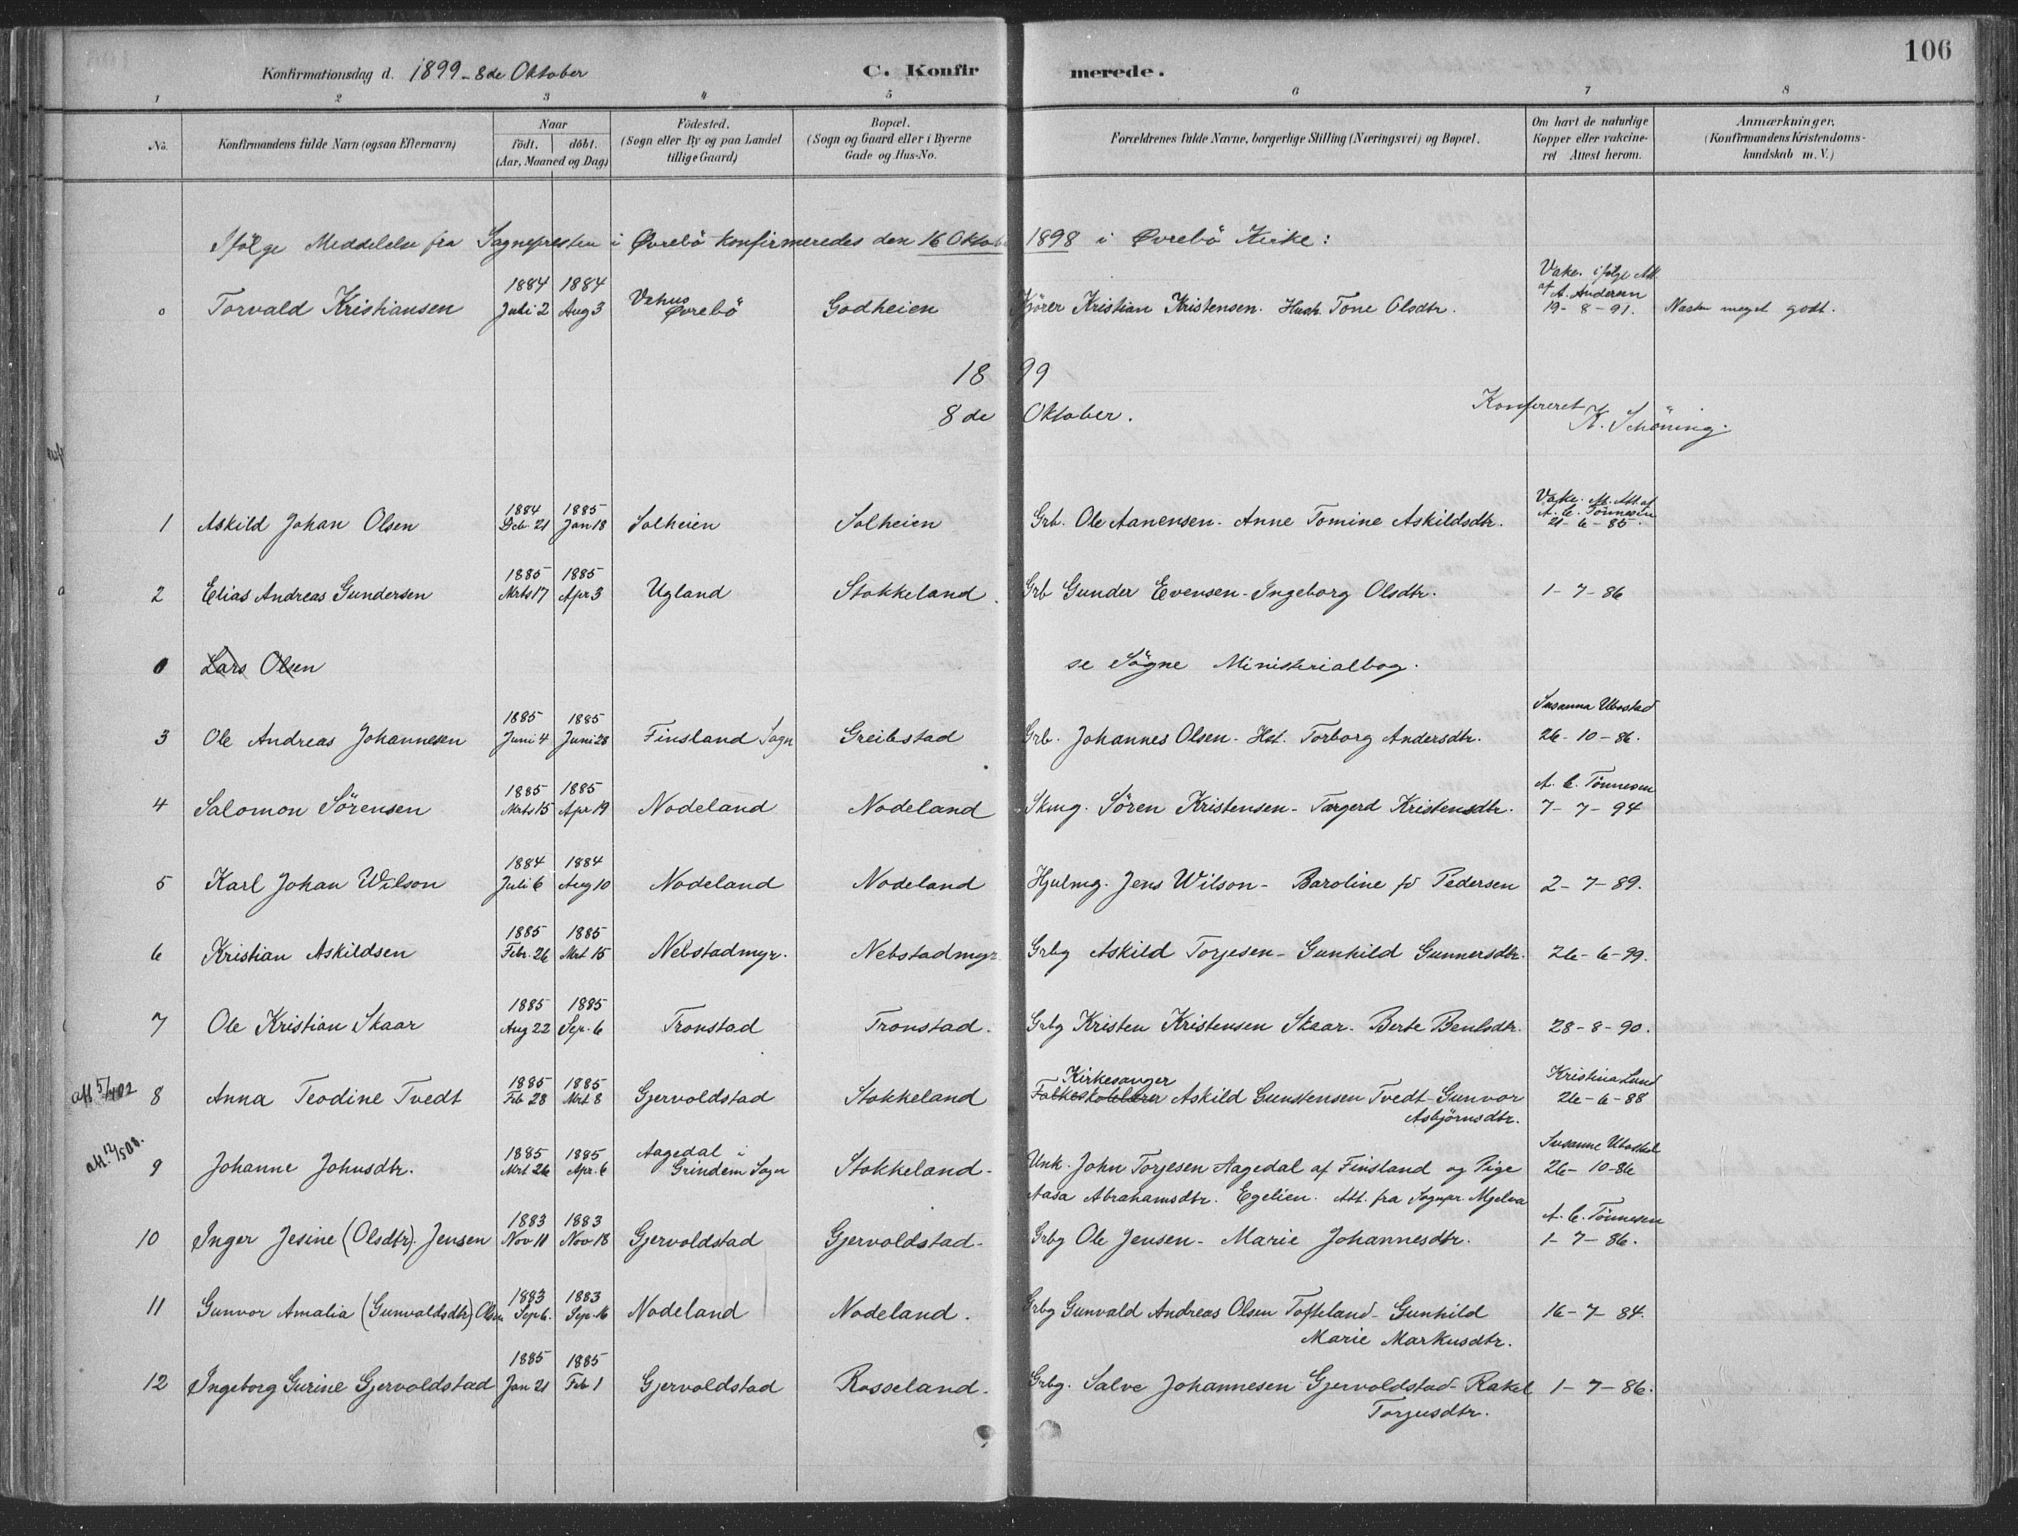 106
Konfirmationsdag d. 1899 - 8de Oktober C. Konfirmerede.
1 2 3 4 5 6 7 8
No. Konfirmandens fulde Navn (ogsaa Efternavn) Naar født. døbt. (Aar, Maaned og Dag) Födested. (Sogn eller By og paa Landet tillige Gaard) Bopæl. (Sogn og Gaard eller i Byerne Gade og Hus-No. Forældrenes fulde Navne, borgerlige Stilling (Næringsvei) og Bopæl. Om havt de naturlige Kopper eller vakcineret Attest herom. Anmærkninger. (Konfirmandens Kristendomskundskab m. V.)
Ifølge Meddelelse fra Sognepresten i Øvrebö konfirmeredes den 16 Oktob 1898 i Øvrebö Kirke:
o Torvald Kristiansen 1884 Juli 2 1884 Aug 3 Øvrebö Godheien Kjörer Kristian Kristensen. Hustr. Tone Olsdtr. Vakc. ifölge Att. af A. Andersen 19-8-91. Næsten meget godt.
1899
8de Oktober.
Konfereret K. Schöning.
1 Askild Johan Olsen 1884 Deb. 21 1885 Jan 18 Solheien Solheien Grb. Ole Aanensen - Anne Tomine Askildsdtr. Vakc. Att af A. C. Tönnesen 21-6-85.
2 Elias Andreas Gundersen 1885 Mrts 17 1885 Apr 3 Ugland Stokkeland. Grb Gunder Evensen - Ingeborg Olsdtr. 1-7-86
0 Lars Olsen se Sögne Ministerialbog.
3 Ole Andreas Johannesen 1885 Juni 4 1885 Juni 28 Finsland Sogn Greibstad Grb. Johannes Olsen - Hst. Torborg Andersdtr. Susanna Ubostad 26-10-86.
4 Salomon Sörensen 1885 Mrts 15 1885 Apr 19 Nodeland Nodeland Skmg. Sören Kristensen - Targerd Kristensdtr. A. C. Tönnesen 7-7-94
5 Karl Johan Wilson 1884 Juli 6 1884 Aug 10 Nodeland Nodeland Hjulmg. Jens Wilson - Baroline fö Pedersen 2-7-89.
6 Kristian Askildsen 1885 Febr. 26 1885 Mrt 15 Nebstadmyr. Nebstadmyr. Grbg Askild Torjesen - Gunhild Gunnersdtr. 26-6-99.
7 Ole Kristian Skaar 1885 Aug 22 1885 Sep. 6 Tronstad Tronstad. Grbg Kristen Kristensen Skaar. Berte Bentsdtr. 28-8-90.
att 5/4 02 8 Anna Teodine Tvedt 1885 Feb 28 1885 Mrt 8 Gjervoldstad Stokkeland Kirkesanger Folkeskolelærer Askild Gunstensen Tvedt - Gunvor Asbjörnsdtr. Kristina Lund 26-6-88
att. 12/5 00. 9 Johanne Johnsdtr. 1885 Mrt 26 1885 Apr. 6 Aagedal i Grindem Sogn Stokkeland - Unk. John Torjesen Aagedal af Finsland og Pige Aasa Abrahamsdtr. Egelien. Att. fra Sognpr. Mjelva Susanne Ubostad 26-10-86
10 Inger Jesine (Olsdtr) Jensen 1883 Nov 11 1883 Nov 18 Gjervoldstad Gjervoldstad - Grbg Ole Jensen - Marie Johannesdtr. A. C. Tönnesen 1-7-86.
11 Gunvor Amalia (Gunvaldsdtr) Olsen 1883 Sep 6. 1883 Sep. 16 Nodeland Nodeland. Grbg Gunvald Andreas Olsen Tofteland - Gunhild Marie Markusdtr. 16-7-84.
12 Ingeborg Gurine Gjervoldstad 1885 Jan 21 1885 Feb 1 Gjervoldstad Rosseland. Grbg. Salve Johannesen Gjervoldstad - Rakel Torjusdtr. 1-7-86.